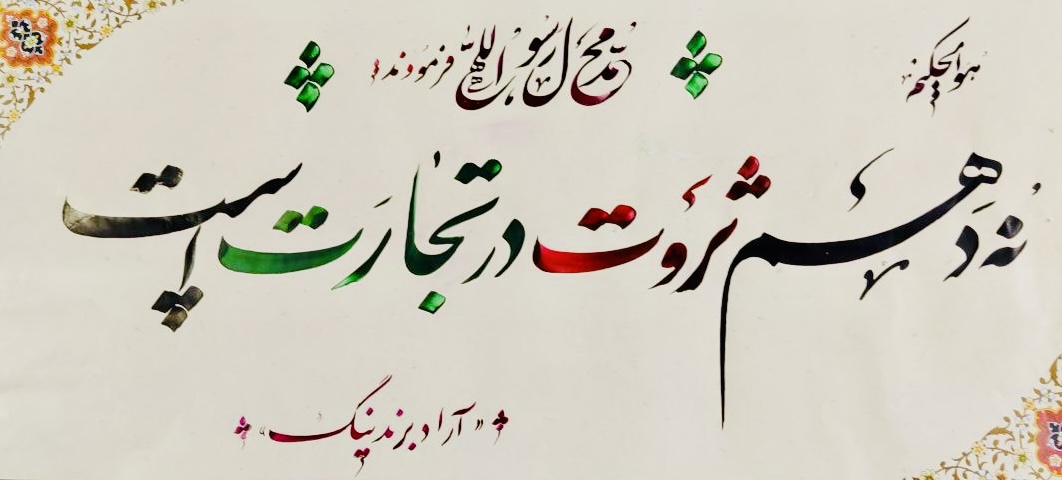 هوالحکیم
محمد رسول الله فرمودند:
نُه دَهُم ثروت در تجارَت است
«آراد برندینگ»